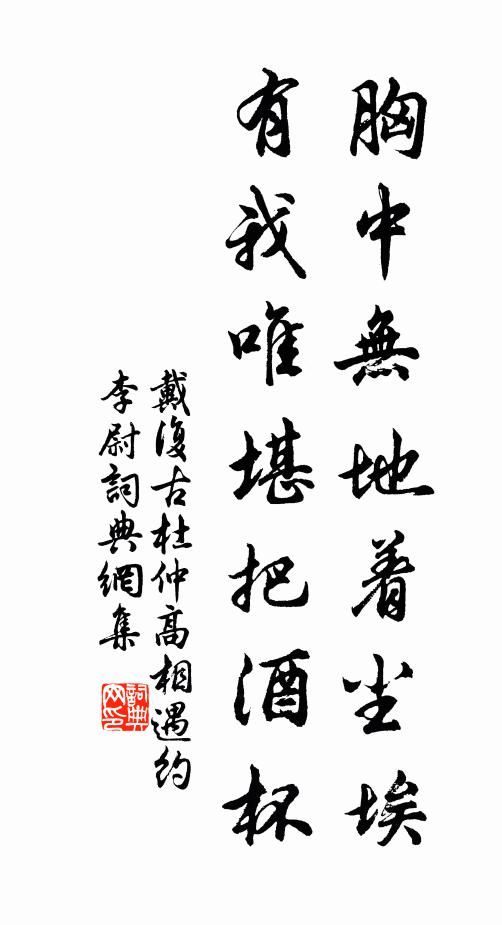 胸中無地着尘埃
有我唯堪把酒杯
戴復古杜仲高相遇约
李尉詞典網集
詞典
网印